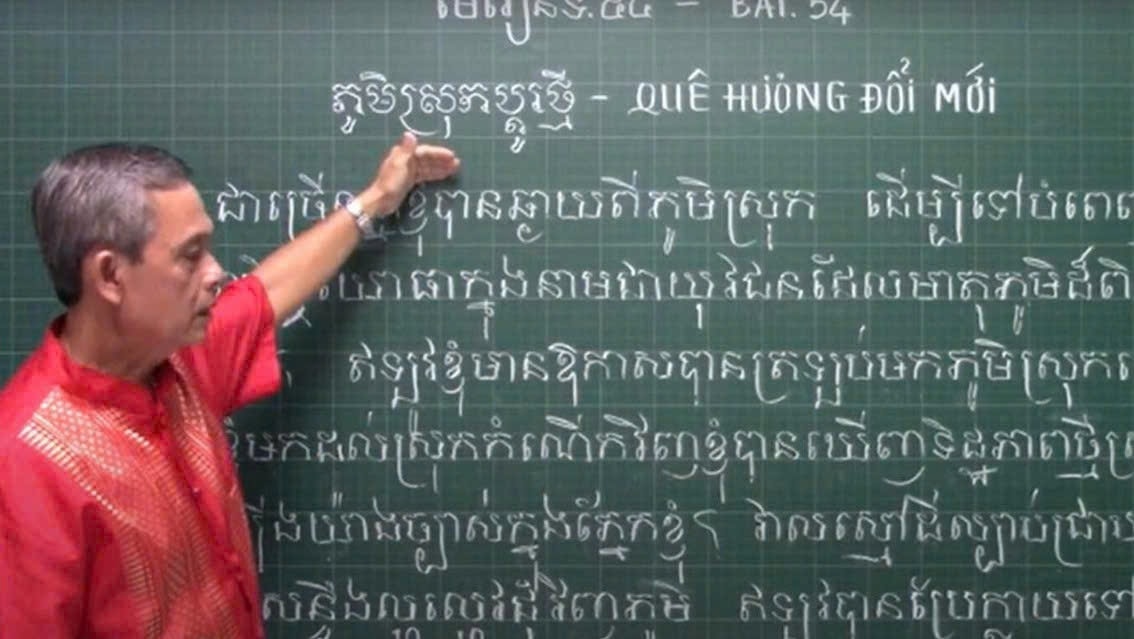 មេរៀនទី.៥៤ - BÀI. 54
ភូមិស្រុកប្ដូរថ្មី - QUÊ HƯƠNG ĐỔI MỚI
ជាច្រើន ខ្ញុំបានឆ្ងាយពីភូមិស្រុក ដើម្បីទៅបំពេញ
យោធាក្នុងនាមជាយុវជនដែលមាតុភូមិដ៏ពិ
ឥឡូវខ្ញុំមានឱកាសបានត្រឡប់មកភូមិស្រុក
មកដល់ស្រុកកំណើតវិញខ្ញុំបានឃើញទិដ្ឋភាពថ្មី
យ៉ាងច្បាស់ក្នុងភ្នែកខ្ញុំ។ វាលស្មៅដីល្បាប់ជ្រាយ
វិញភូមិ ឥឡូវបានប្រែក្លាយទៅ